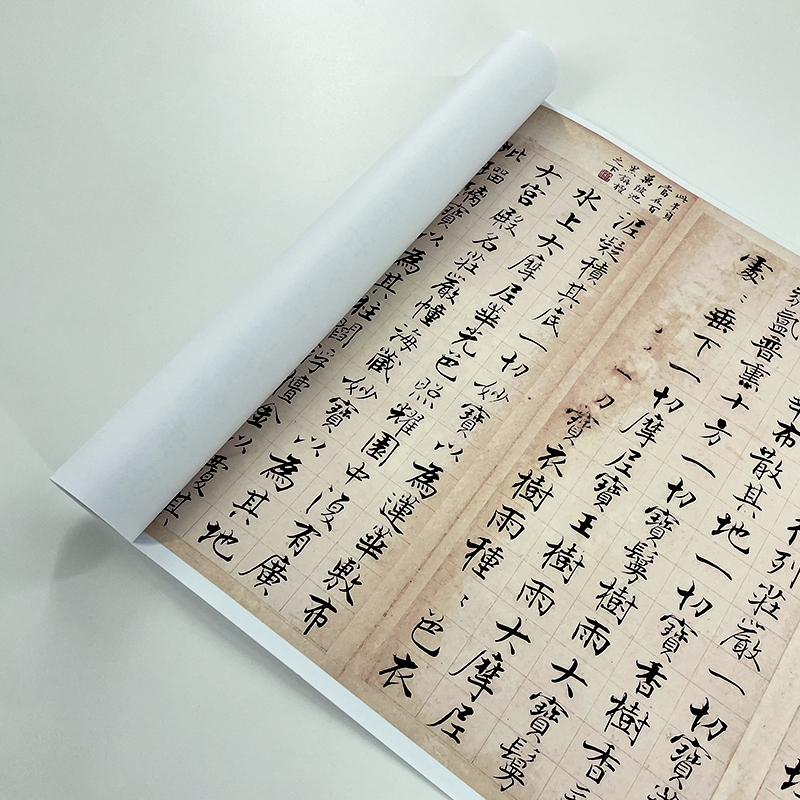 行列莊嚴一切寶
布散其地一切寶香樹香
氳普熏十方一切寶鬘樹雨大寶鬘
處〻垂下一切摩尼寶王樹雨大摩尼
一切寶衣樹雨種〻色衣
當在百
萬陂池
之下
泥凝積其底一切妙寶以為蓮華敷布
水上大摩尼華光色照耀園中復有廣
大宮殿名莊嚴幢海藏妙寶以為其地
毗瑠璃寶以為其柱閻浮檀金以覆其